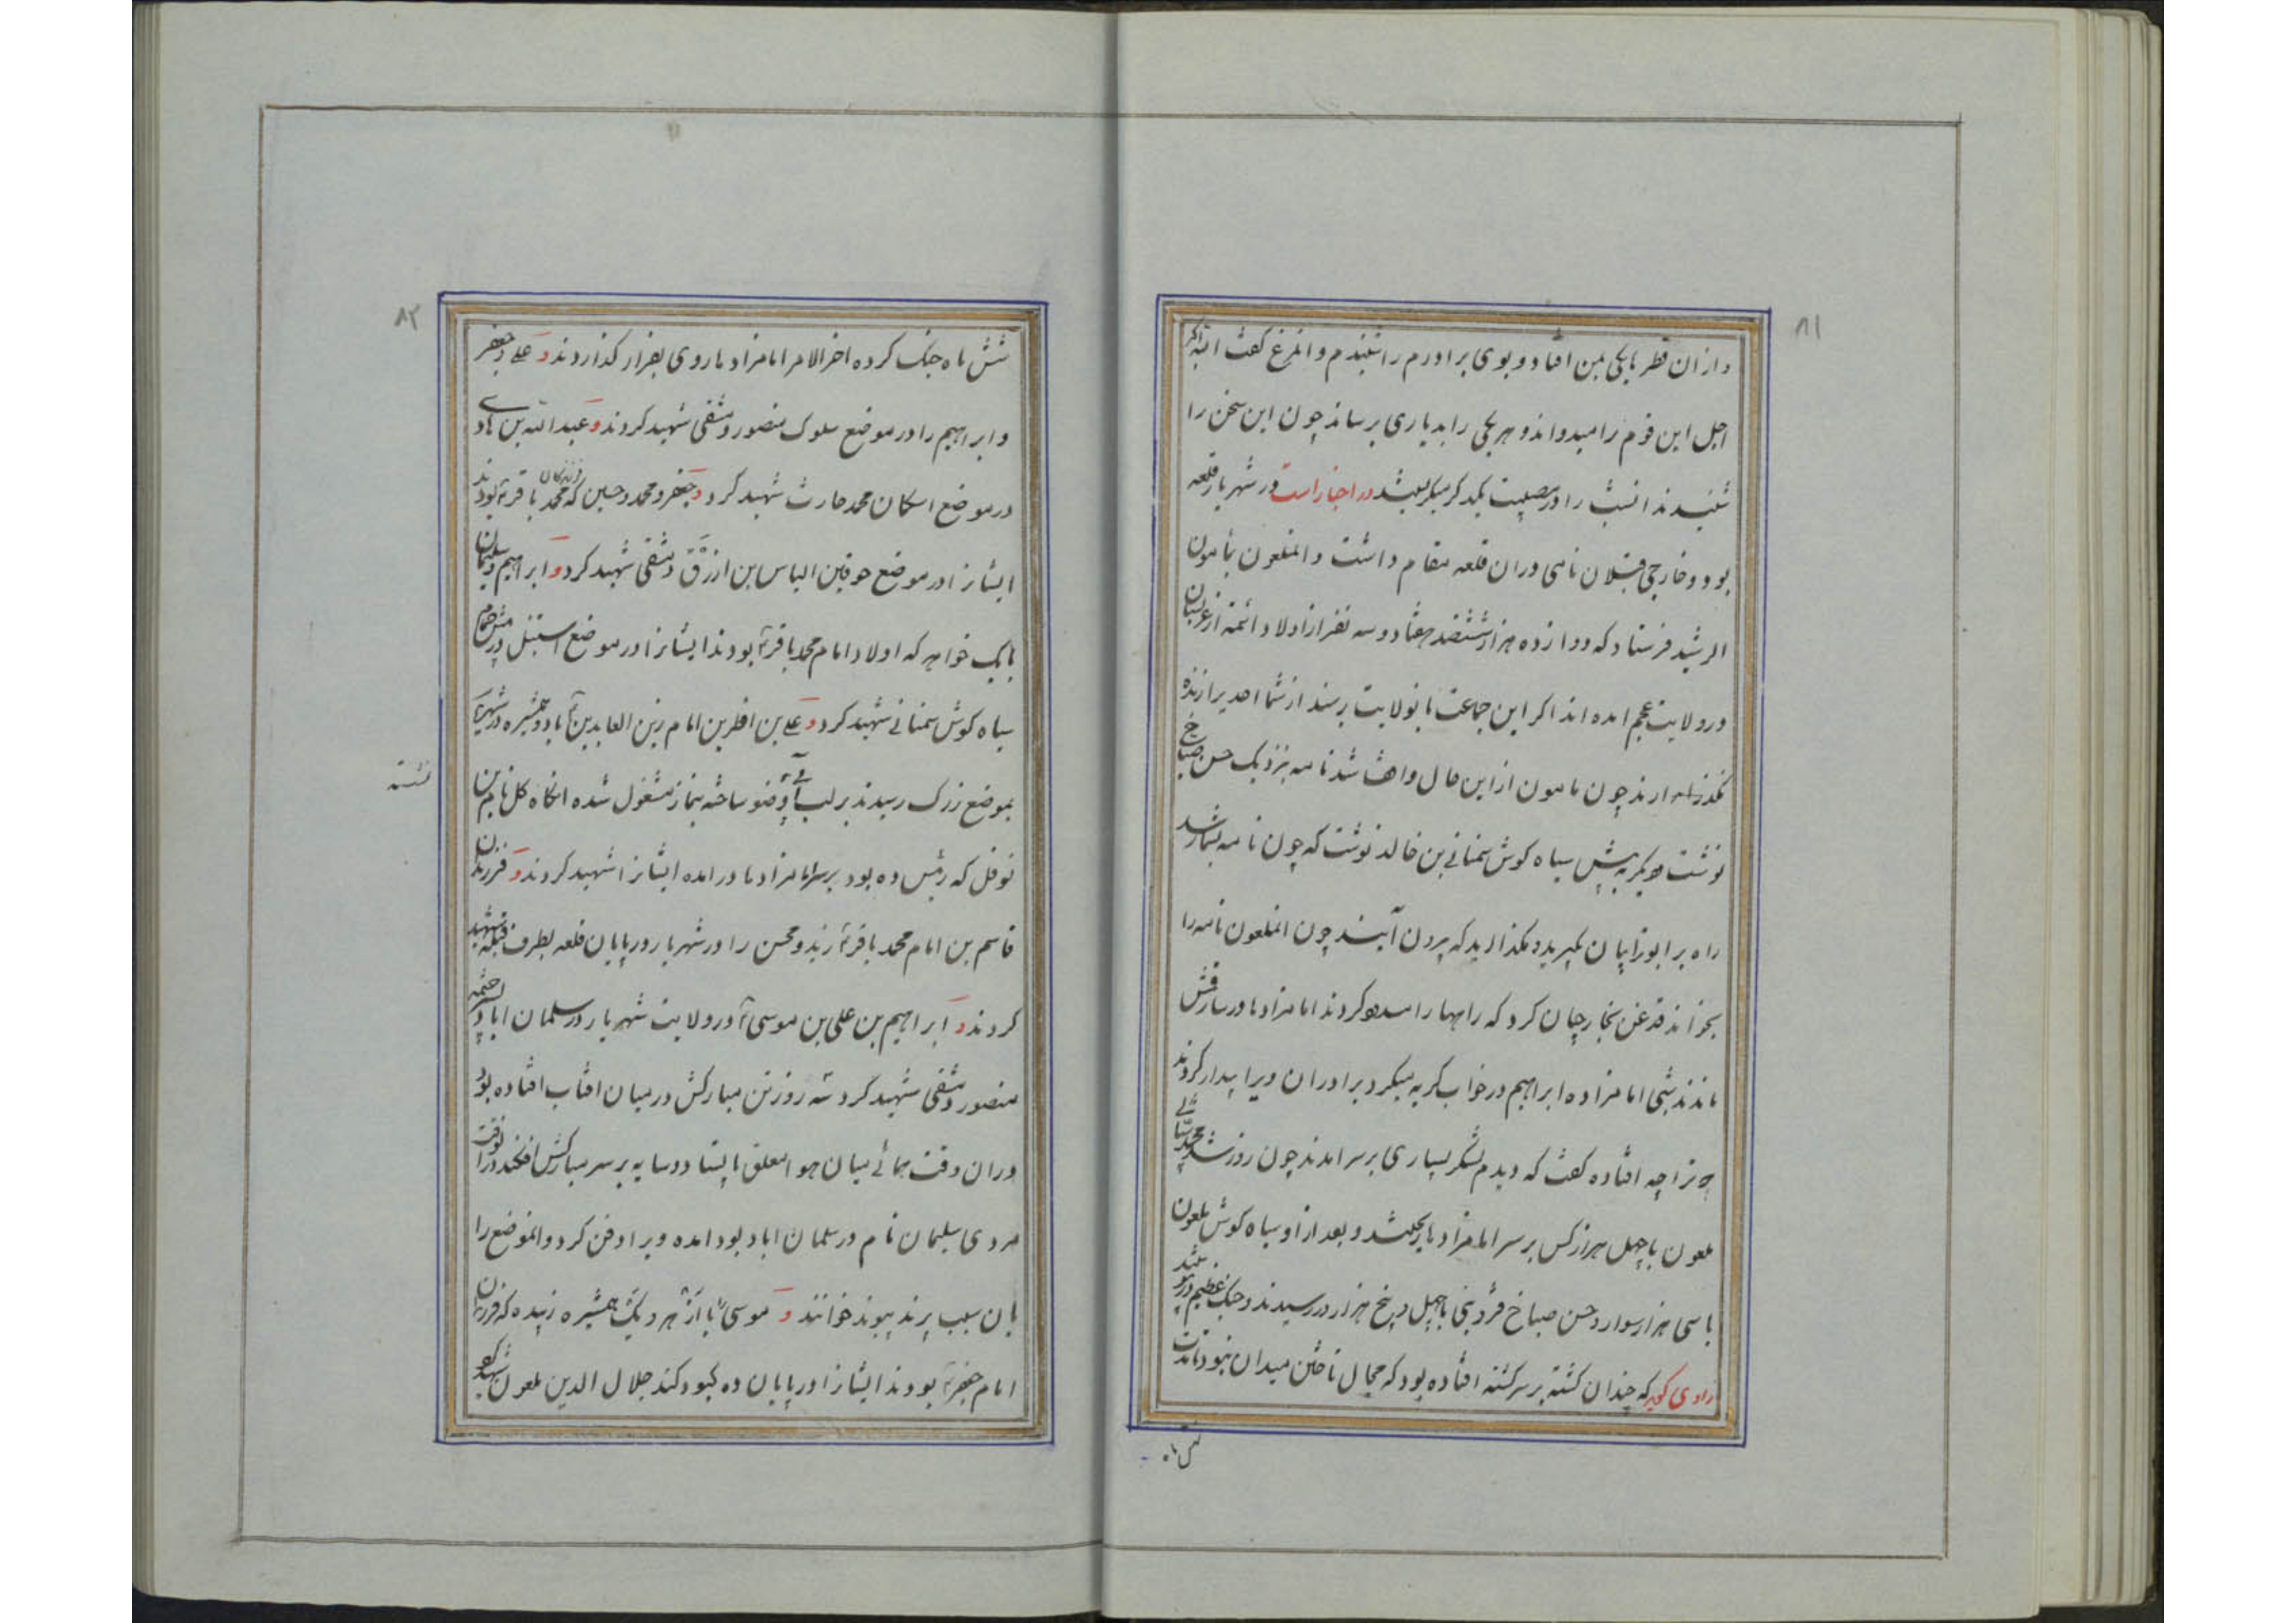 ۸۱
و ازان قطر بایکی بمن افتاد و بوی برادرم را شنیدم و المرغ کفت البته اکر
اجل این قوم را میدواند و هر یکی را بدیاری برساند چون این سخن را
شنیدند انشب را در مصیبت یکدکر میکریستند در اخبار است در شهریار قلعه
بود و خارجی قتلان نامی دران قلعه مقام داشت و المعلون بمأمون
الرشید فرستاد که دوازده هزار ششصد هفتاد و سه نفر از اولاد ائمه از عربستان
در ولایت عجم امده اند اکر این جماعت بانولایت برسند از شما احدیرا زنده
نکذارند چون مامون از این حال واقف شد نامه بنزدیک حسن صباخ
نوشت و دیکر به پیش سیاه کوش سمنانی بن خالد نوشت که چون نامه بشما رسد
راه بر ابوترابیان بکیرید و مکذارید که بیرون آیند چون المعلون نامه را
بخواند قدغن بخارجیان کرد که راهها را مسدود کردند امامزادها در سارقش
ماندند شبی امامزاده ابراهیم در خواب کریه میکرد برادران ویرا بیدار کردند
که ترا چه افتاده کفت که دیدم لشکر بسیاری بر سر امدند چون روز شد محمد
ملعون با چهل هزار کس بر سر امامزادها و بعد از او سیاه کوش ملعون
با سی هزار سوار و حسن صباخ قزوینی با چهل و پنج هزار در رسیدند و جنک عظیم
راوی کوید که چندان کشته بر سر کشته افتاده بود که مجال تاختن میدان نبود تا مدت
شش ماه
۸۲
شش ماه جنک کرده اخر الامر امامزادها روی بفرار کذاردند و علی و جعفر
و ابراهیم را در موضع سلوک منصور دمشقی شهید کردند و عبدالله بن هادی
در موضع اسکان محمد حارث شهید کرد و جعفر و محمد و حسین که فرزندان محمد باقر بودند
ایشانرا در موضع الیاس بن ازرق دمشقی شهید کرد و ابراهیم و سلیمان
با یک خواهر که اولاد امام محمد باقر بودند ایشانرا در موضع
سیاه کوش سمنانی شهید کرد و علی بن افطر بن امام زین العابدین با دو همشیره در شهر
بموضع زرک رسیدند بر لب آب وضو ساخته بنماز مشغول شده انکاه کل نام بن
نوفل که رئیس ده بود بر سر امامزادها در امده ایشانرا شهید کردند و فرزندان
قاسم بن امام محمد باقر زید و محسن را در شهریار در پایان قلعه بطرف قبله شهید
کردند و ابراهیم بن علی بن موسی در ولایت شهریار در سلمان اباد
منصور دمشقی شهید کرد سه روز تن مبارکش در میان افتاب افتاده بود
دران وقت همائی میان هوا معلق بایستاد و سایه بر سر مبارکش افکند
مردی سلیمان نام در سلمان اباد بود امده ویرا دفن کرد و المؤضع را
بان سبب پرند پیوند خوانند و موسی با همشیره زبیده که فرزندان
امام جعفر بودند ایشانرا در پایان ده کبود کند جلال الدین ملعون شهید کرد